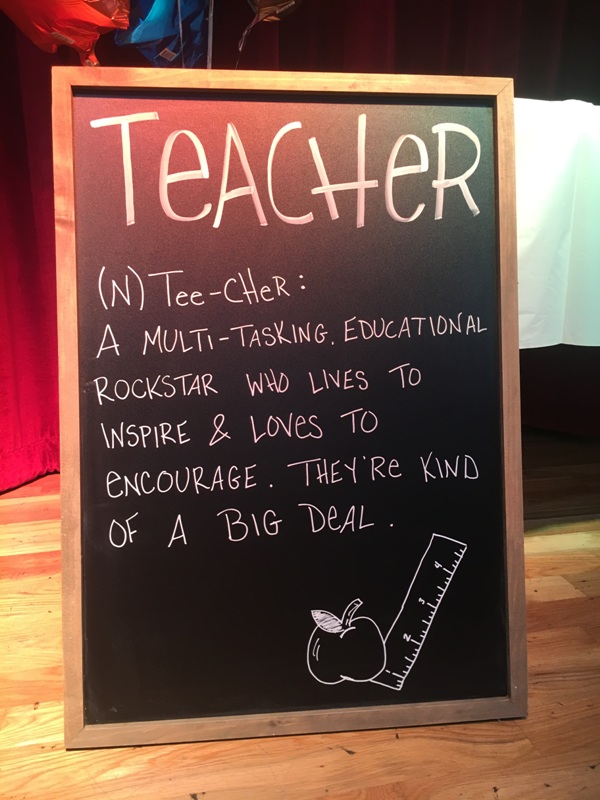 TeACHeR
(N) Tee-CHeR:
A MULTi-TASKING. EDUCATIONAL
ROCKSTAR WHO LIVES TO
INSPIRE & LOVes TO
eNCOURAGE. THEY'Re KIND
OF A BIG DeAL.
4
3
2
1